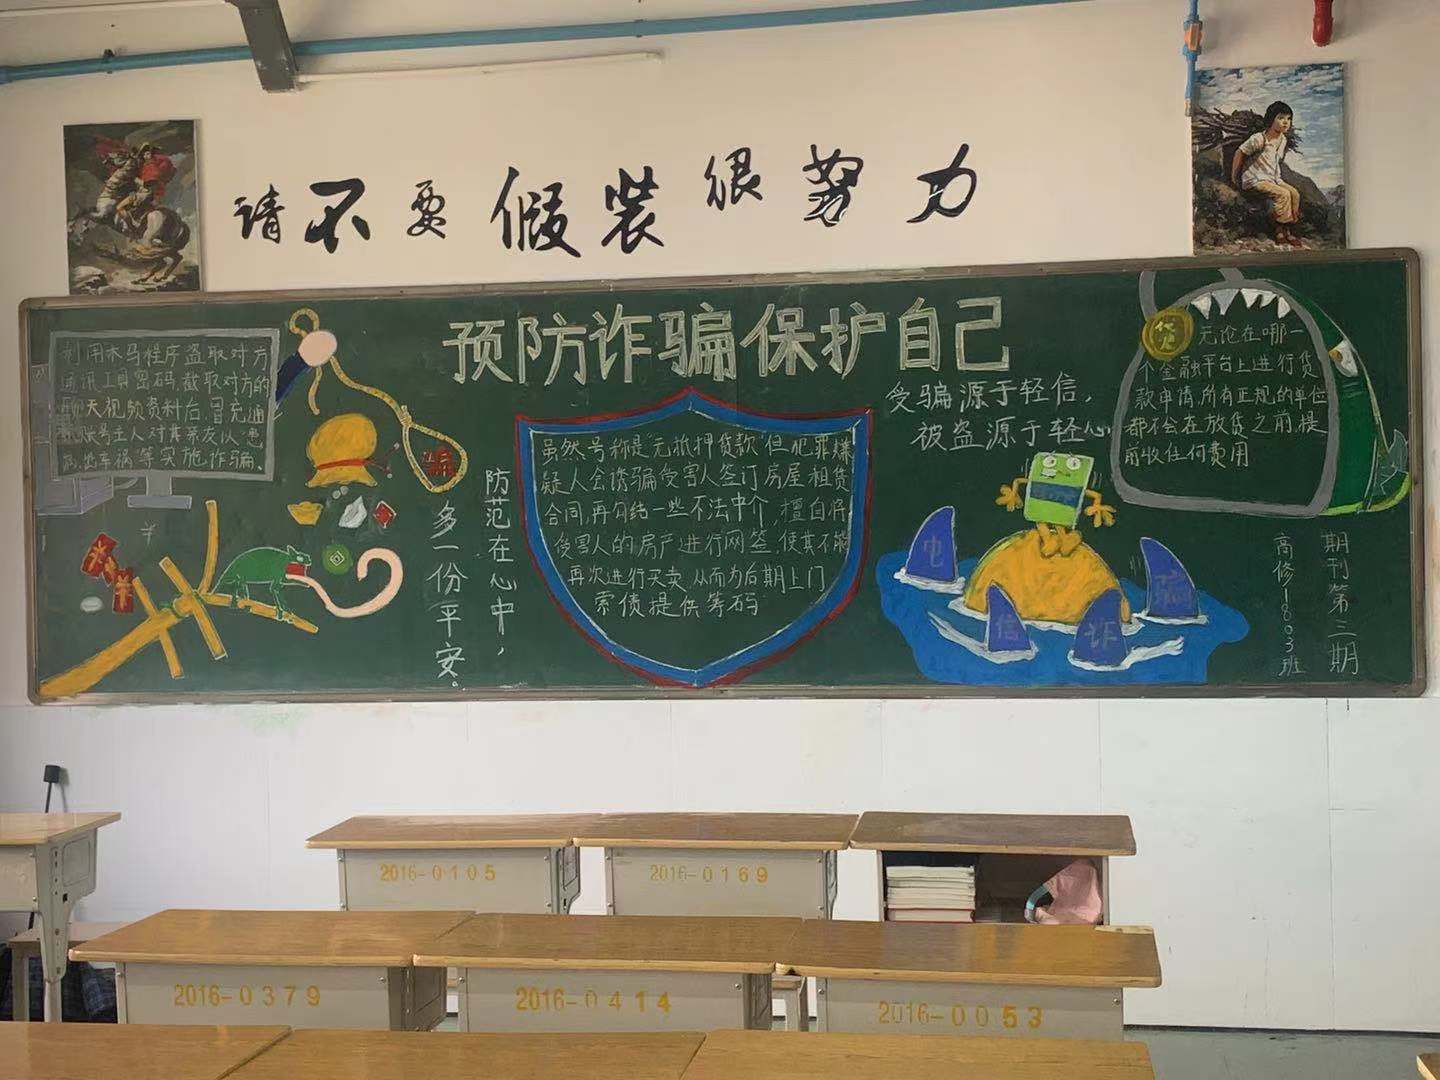 请不要假装很努力
预防诈骗保护自己
利用木马程序盗取对方
通讯工具密码,截取对方的
聊天视频资料后,冒充通
讯账号主人对其亲友以"患
病,出车祸"等实施诈骗。
防范在心中,
多一份平安。
虽然号称是"无抵押贷款"但犯罪嫌
疑人会诱骗受害人签订房屋租赁
合同,再勾结一些不法中介,擅自将
受害人的房产进行网签,使其不能
再次进行买卖,从而为后期上门
索债提供筹码
受骗源于轻信,
被盗源于轻心
电
信
诈
骗
贷
无论在哪一
个金融平台上进行贷
款申请,所有正规的单位
都不会在放贷之前提
前收任何费用
期刊第三期
高修1803班
2016-0105
2016-0169
2016-0379
2016-0414
2016-0053